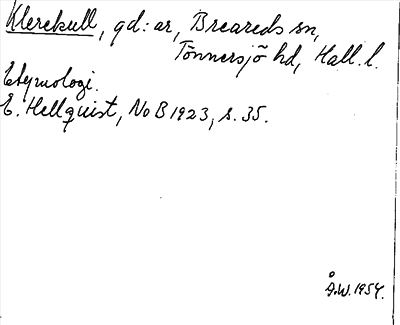 Klerekull, gd:ar, Breareds sn,
Tönnersjö hd, Hall. l.
Etymologi.
E. Hellquist, NoB 1923, s. 35.
Å.W. 1954.